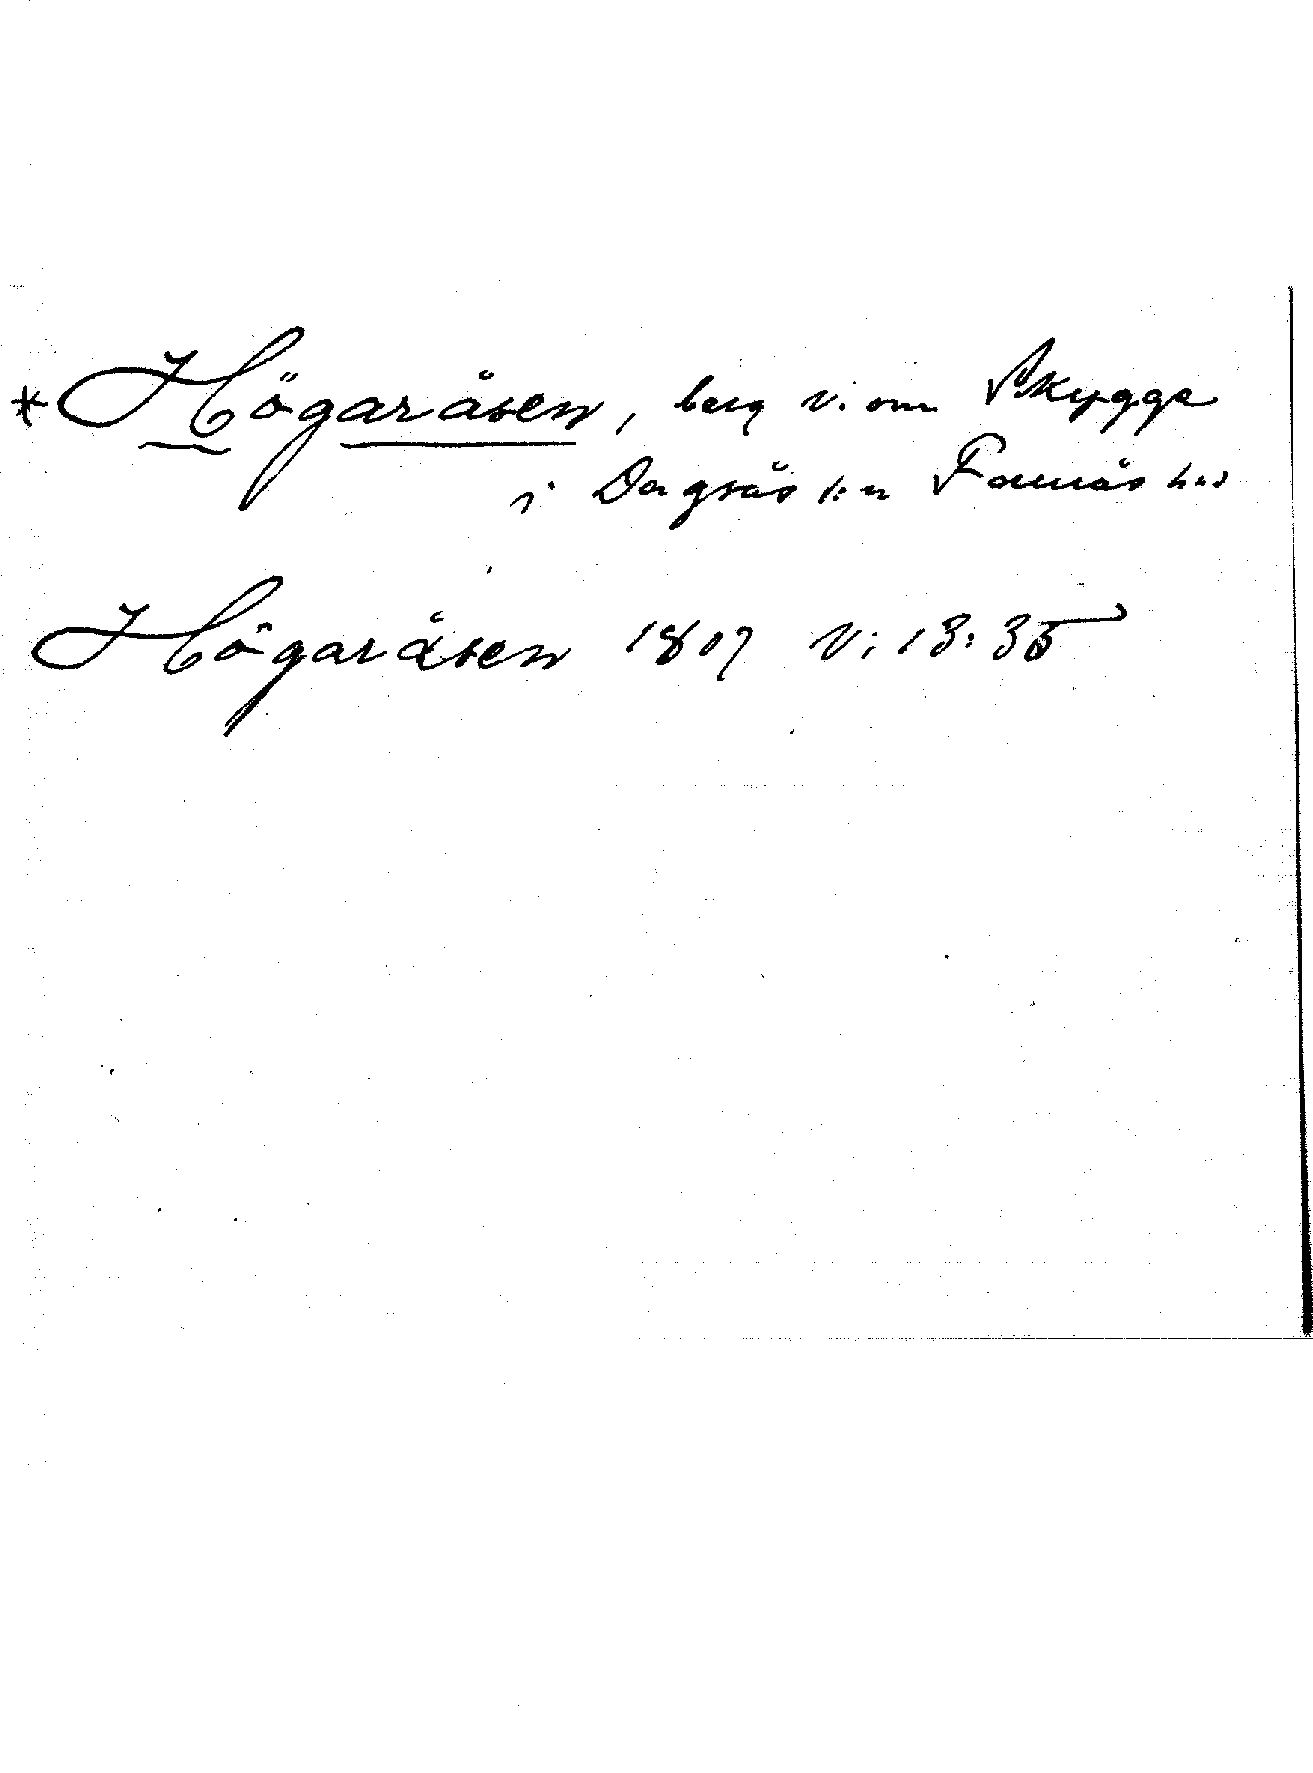 * Högaråsen, berg v. om Skygge
i Dagsås sn Faurås hd
Högaråsen 1807 V: 13: 35